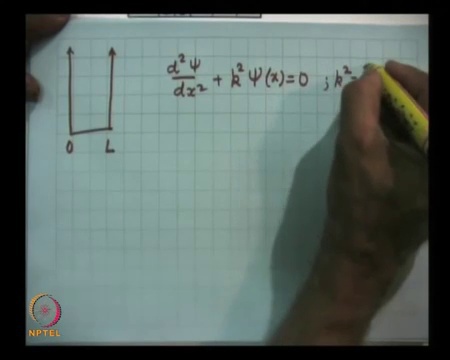 d²Ψ/dx² + k² Ψ(x) = 0 ; k² =
0 L
NPTEL